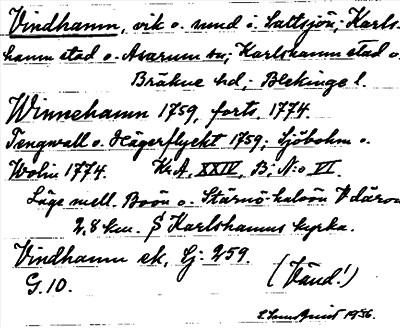 Vindhamn, vik o. sund i Saltsjön, Karls-
hamn stad o. Asarum sn; Karlshamn stad o.
Bräkne hd; Blekinge l.
Winnehamn 1759, forts. 1774.
Tengwall o. Hägerflycht 1759; Sjöbohm o.
Wolin 1774. Kr.A. XXIV, B. No VI.
Läge mell. Boön o. Stärnö-halvön V därom
2,8 km. S Karlshamns kyrka.
Vindhamn ek. Sj. 259.
G. 10. (Vänd!)
1956.